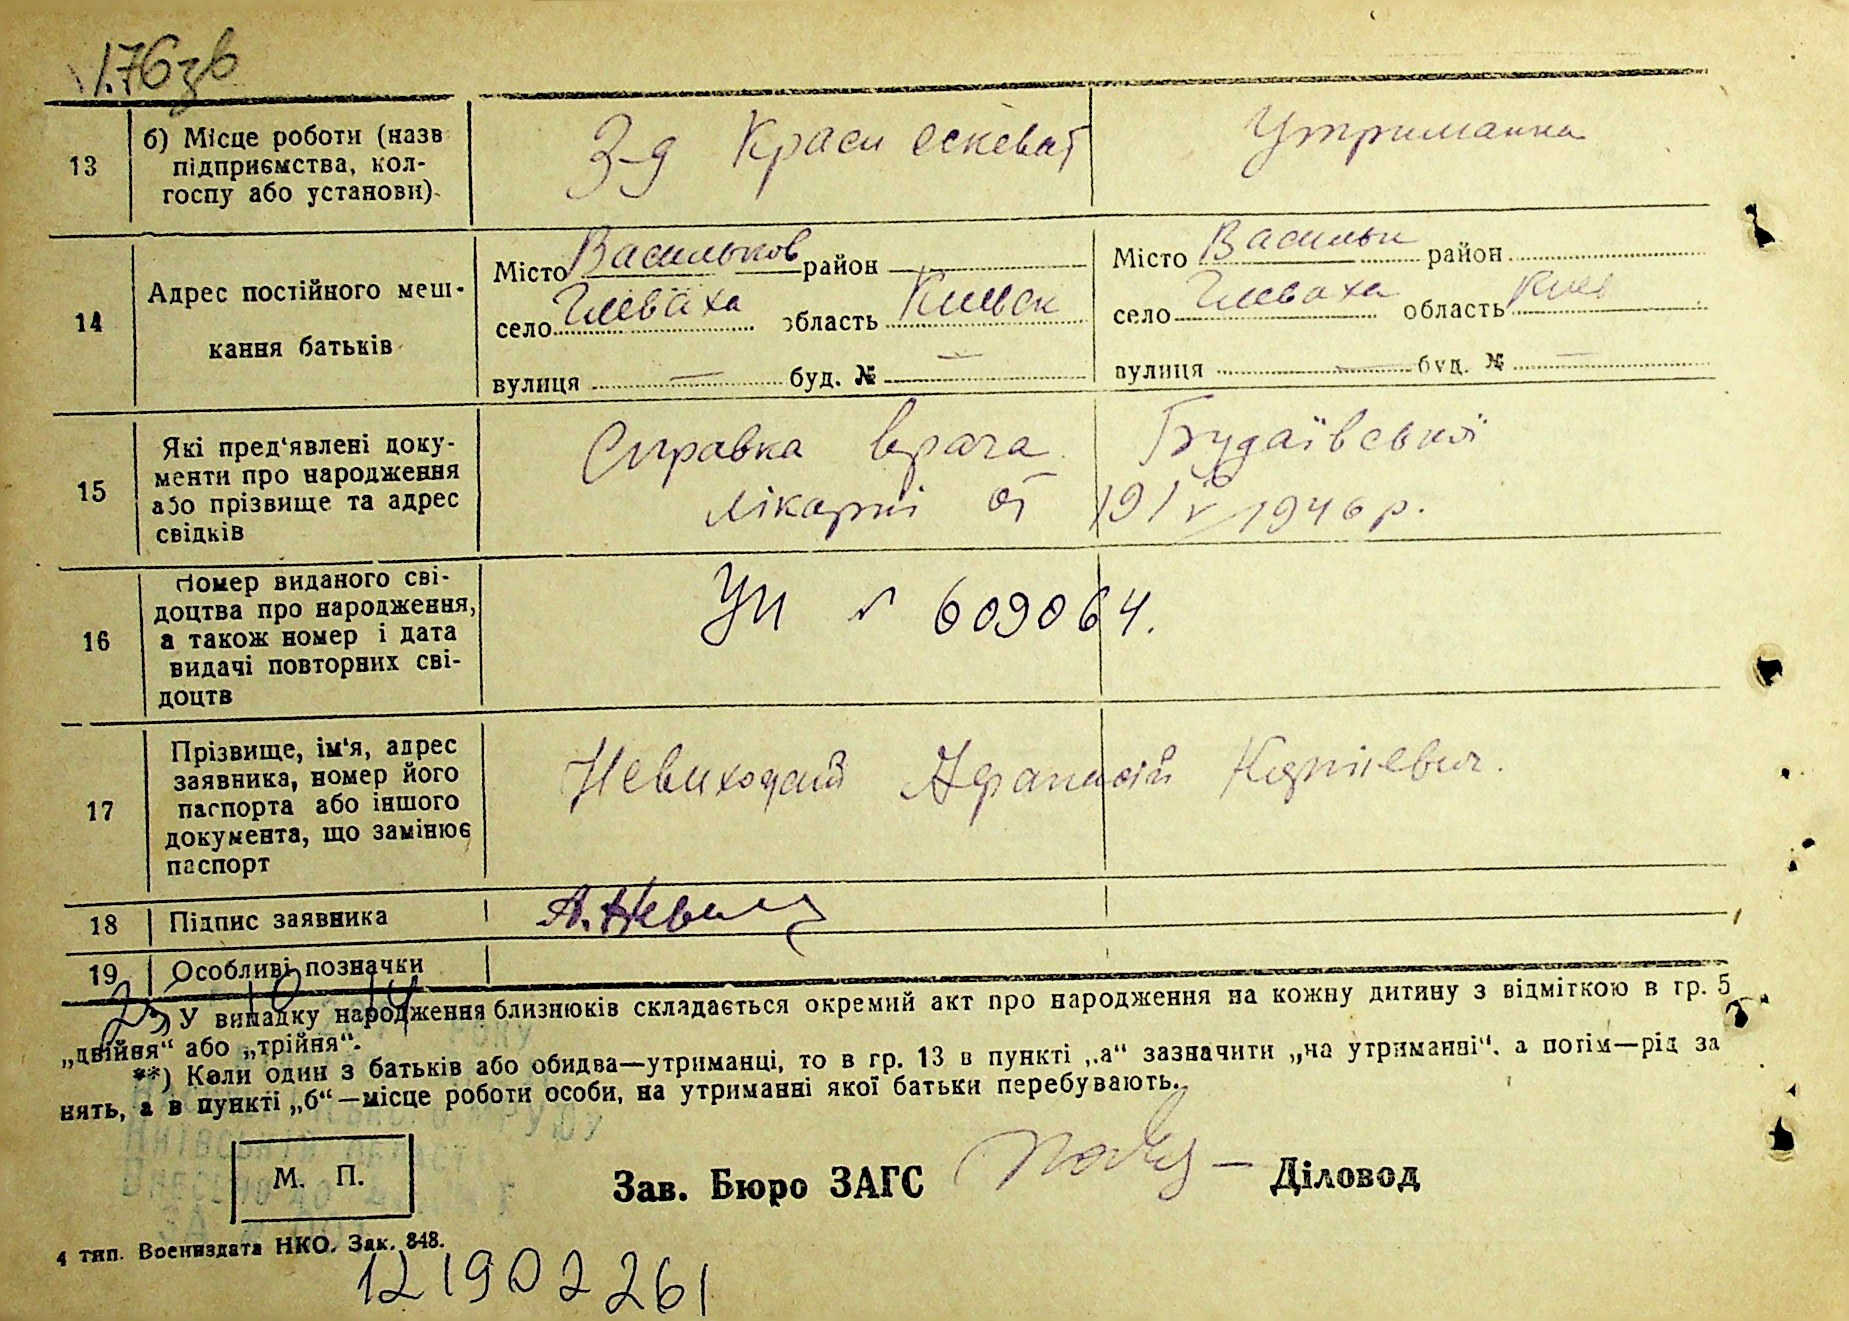 176зв
13
б) Місце роботи (назв
підприємства, кол-
госпу або установи)
З-д Красн екскеват
Утриманка
14
Адрес постійного меш-
кання батьків
Місто Васильков район
село Глеваха область Киевск
вулиця — буд. № —
Місто Васильк район
село Глеваха область Киев
вулиця — буд. № —
15
Які пред'явлені доку-
менти про народження
або прізвище та адрес
свідків
Справка врача Будаївської
лікарні от 19/V 1946 р.
16
Номер виданого сві-
доцтва про народження,
а також номер і дата
видачі повторних сві-
доцтв
УИ № 609064.
17
Прізвище, ім'я, адрес
заявника, номер його
паспорта або іншого
документа, що замінює
паспорт
Невиходой Афанасій Корнієвич.
18
Підпис заявника
А. Невих
19
Особливі позначки
*) У випадку народження близнюків складається окремий акт про народження на кожну дитину з відміткою в гр. 5
„двійня“ або „трійня“.
**) Коли один з батьків або обидва—утриманці, то в гр. 13 в пункті „а“ зазначити „на утриманні“, а потім—рід за
нять, а в пункті „б“—місце роботи особи, на утриманні якої батьки перебувають.
М. П.
Зав. Бюро ЗАГС
Діловод
4 тип. Воениздата НКО. Зак. 848.
121902261